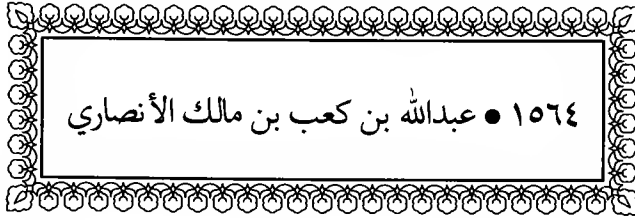 ١٥٦٤ • عبدالله بن كعب بن مالك الأنصاري